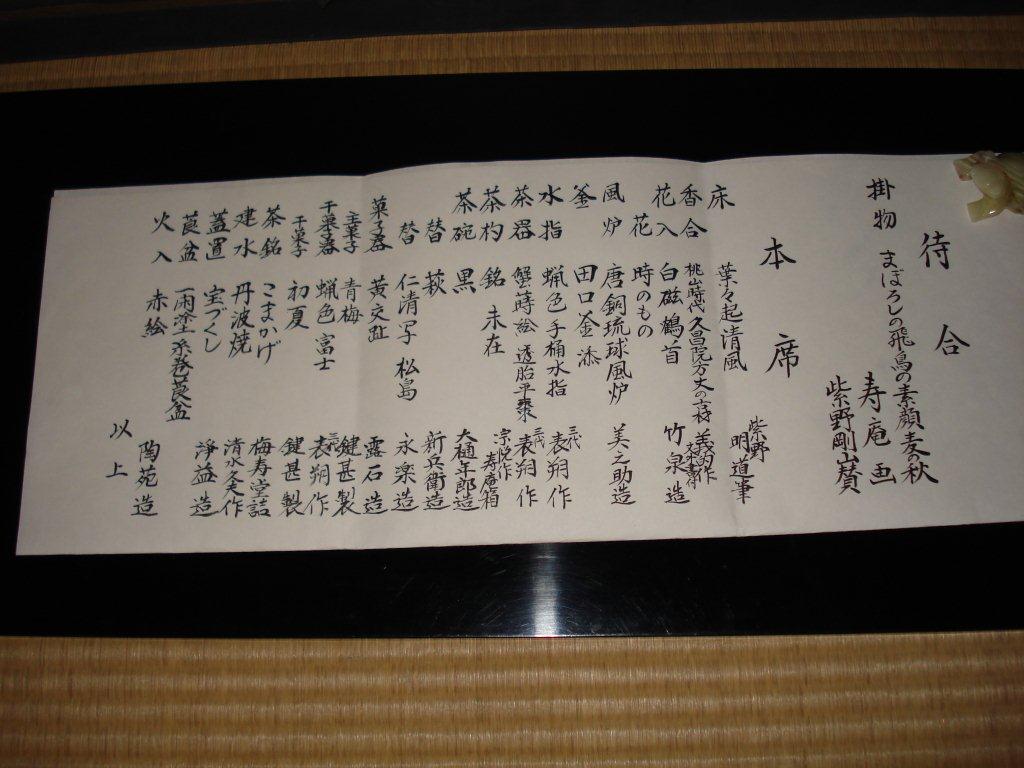 待合
掛物 まぼろしの飛鳥の素顔麦の秋
寿庵 画
紫野剛山賛
本席
床 葉々起清風 紫野 明道筆
香合 桃山時代 久昌院方丈の古材
花入 白磁鶴首 竹泉造
花 時のもの
風炉 唐銅琉球風炉 美之助造
釜 田口釜添
水指 蝋色手桶水指 三代 表朔作
茶器 蟹蒔絵 透胎平棗 三代 表朔作
茶杓 銘 未在 宗悦作 寿庵箱
茶碗 黒 大樋年郎造
替 萩 新兵衛造
替 仁清写 松島 永楽造
菓子器 黄交趾 露石造
主菓子 青梅 鍵甚製
干菓子器 蝋色 富士 三代 表朔作
干菓子 初夏 鍵甚製
茶銘 こまかげ 梅寿堂詰
建水 丹波焼 清水久作
蓋置 宝づくし 淨益造
莨盆 一閑塗 糸巻莨盆
火入 赤絵 陶苑造
以上